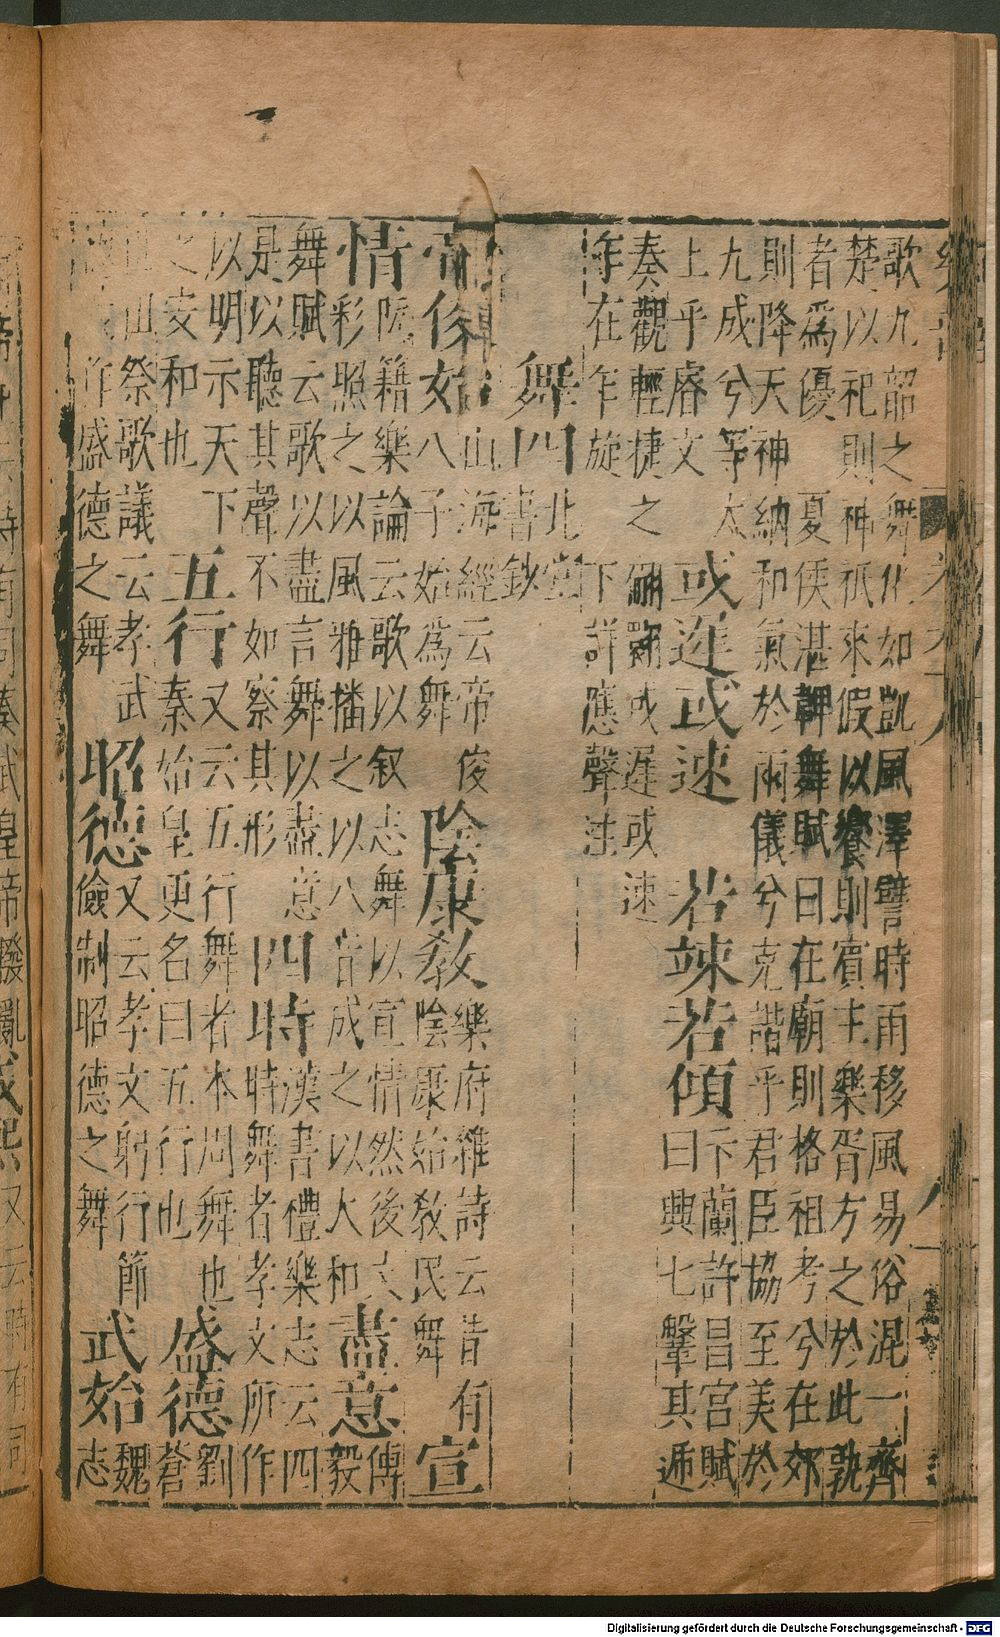 歌九韶之舞化如凱風澤譬時雨移風易俗混一齊
楚以祀則神祇來假以饗則賓主樂胥方之於此孰
者為優 夏侯湛鞞舞賦曰在廟則格祖考兮在郊
則降天神納和氣於兩儀兮克諧乎君臣協至美於
九成兮等太
上乎睿文
或遲或速
若竦若傾
卞蘭許昌宮賦
曰興七鞶其遞
奏觀輕捷之翩翻或遲或速
乍在乍旋下詳應聲注
舞四
北堂
書鈔
帝俊始
山海經云帝俊
八子始為舞
陰康教
樂府雜詩云昔有
陰康始教民舞
宣
情
阮籍樂論云歌以叙志舞以宣情然後文
彩照之以風雅播之以八音成之以大和
盡意
傅
毅
舞賦云歌以盡言舞以盡意
是以聽其聲不如察其形
四時
漢書禮樂志云四
時舞者孝文所作
以明示天下
之安和也
五行
又云五行舞者本周舞也
秦始皇更名曰五行也
盛德
劉
蒼
山祭歌議云孝武
作盛德之舞
昭德
又云孝文躬行節
儉制昭德之舞
武始
魏
志